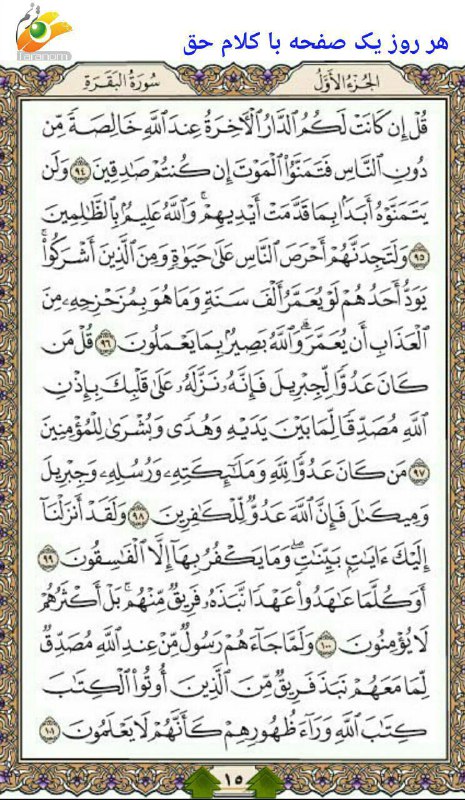 هر روز یک صفحه با کلام حق
Taranom
الجزء الأول
سورة البقرة
قُلْ إِن كَانَتْ لَكُمُ ٱلدَّارُ ٱلْأَخِرَةُ عِندَ ٱللَّهِ خَالِصَةً مِّن
دُونِ ٱلنَّاسِ فَتَمَنَّوُا۟ ٱلْمَوْتَ إِن كُنتُمْ صَٰدِقِينَ ٩٤ وَلَن
يَتَمَنَّوْهُ أَبَدًۢا بِمَا قَدَّمَتْ أَيْدِيهِمْ ۗ وَٱللَّهُ عَلِيمٌۢ بِٱلظَّٰلِمِينَ
٩٥ وَلَتَجِدَنَّهُمْ أَحْرَصَ ٱلنَّاسِ عَلَىٰ حَيَوٰةٍ وَمِنَ ٱلَّذِينَ أَشْرَكُوا۟ ۚ
يَوَدُّ أَحَدُهُمْ لَوْ يُعَمَّرُ أَلْفَ سَنَةٍ وَمَا هُوَ بِمُزَحْزِحِهِۦ مِنَ
ٱلْعَذَابِ أَن يُعَمَّرَ ۗ وَٱللَّهُ بَصِيرٌۢ بِمَا يَعْمَلُونَ ٩٦ قُلْ مَن
كَانَ عَدُوًّا لِّجِبْرِيلَ فَإِنَّهُۥ نَزَّلَهُۥ عَلَىٰ قَلْبِكَ بِإِذْنِ
ٱللَّهِ مُصَدِّقًا لِّمَا بَيْنَ يَدَيْهِ وَهُدًى وَبُشْرَىٰ لِلْمُؤْمِنِينَ
٩٧ مَن كَانَ عَدُوًّا لِّلَّهِ وَمَلَٰٓئِكَتِهِۦ وَرُسُلِهِۦ وَجِبْرِيلَ
وَمِيكَىٰلَ فَإِنَّ ٱللَّهَ عَدُوٌّ لِّلْكَٰفِرِينَ ٩٨ وَلَقَدْ أَنزَلْنَآ
إِلَيْكَ ءَايَٰتٍۭ بَيِّنَٰتٍ ۖ وَمَا يَكْفُرُ بِهَآ إِلَّا ٱلْفَٰسِقُونَ ٩٩
أَوَكُلَّمَا عَٰهَدُوا۟ عَهْدًا نَّبَذَهُۥ فَرِيقٌ مِّنْهُم ۚ بَلْ أَكْثَرُهُمْ
لَا يُؤْمِنُونَ ١٠٠ وَلَمَّا جَآءَهُمْ رَسُولٌ مِّنْ عِندِ ٱللَّهِ مُصَدِّقٌ
لِّمَا مَعَهُمْ نَبَذَ فَرِيقٌ مِّنَ ٱلَّذِينَ أُوتُوا۟ ٱلْكِتَٰبَ
كِتَٰبَ ٱللَّهِ وَرَآءَ ظُهُورِهِمْ كَأَنَّهُمْ لَا يَعْلَمُونَ ١٠١
١٥